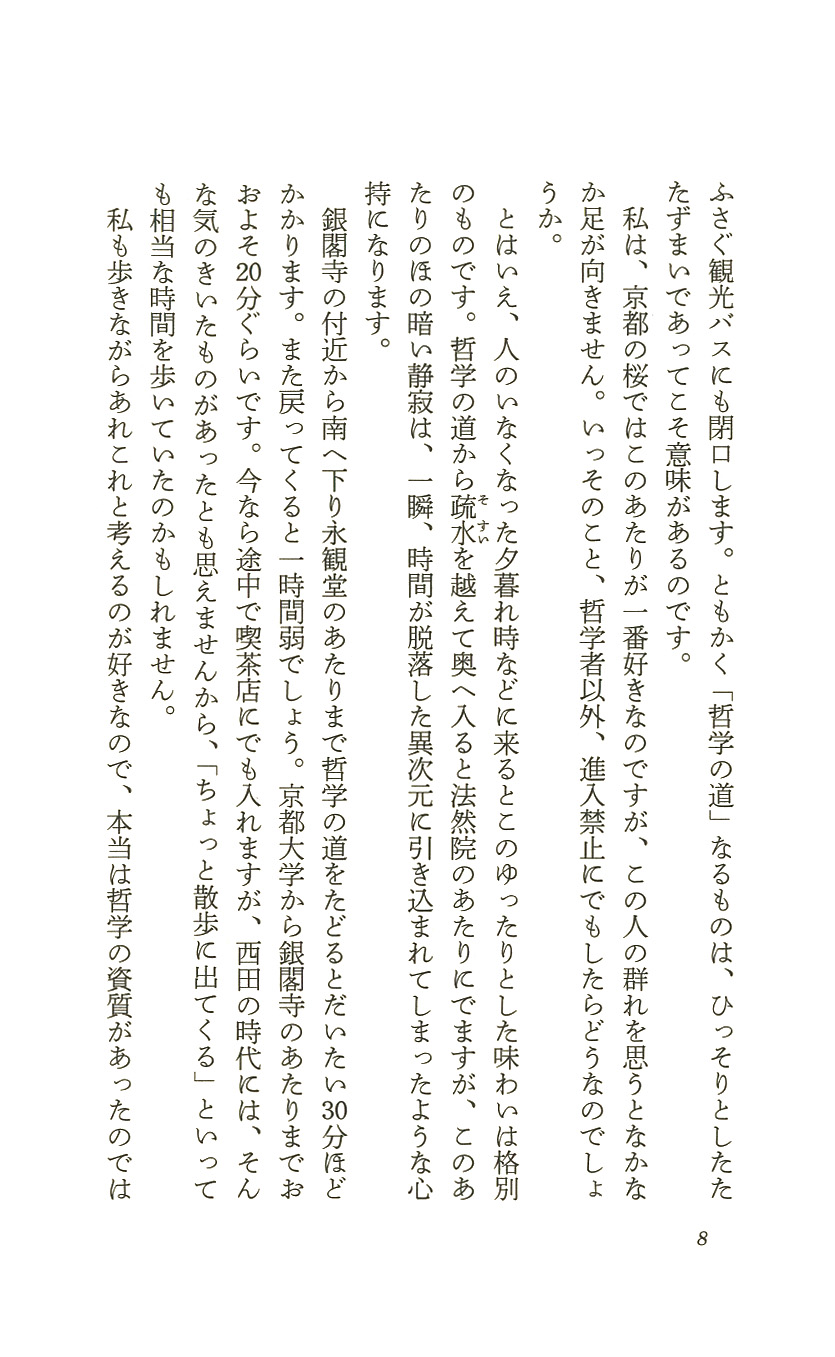 ふさぐ観光バスにも閉口します。ともかく「哲学の道」なるものは、ひっそりとしたた
たずまいであってこそ意味があるのです。
私は、京都の桜ではこのあたりが一番好きなのですが、この人の群れを思うとなかな
か足が向きません。いっそのこと、哲学者以外、進入禁止にでもしたらどうなのでしょ
うか。
とはいえ、人のいなくなった夕暮れ時などに来るとこのゆったりとした味わいは格別
のものです。哲学の道から疏水を越えて奥へ入ると法然院のあたりにでますが、このあ
そ すい
たりのほの暗い静寂は、一瞬、時間が脱落した異次元に引き込まれてしまったような心
持になります。
銀閣寺の付近から南へ下り永観堂のあたりまで哲学の道をたどるとだいたい30分ほど
かかります。また戻ってくると一時間弱でしょう。京都大学から銀閣寺のあたりまでお
およそ20分ぐらいです。今なら途中で喫茶店にでも入れますが、西田の時代には、そん
な気のきいたものがあったとも思えませんから、「ちょっと散歩に出てくる」といって
も相当な時間を歩いていたのかもしれません。
私も歩きながらあれこれと考えるのが好きなので、本当は哲学の資質があったのでは
8